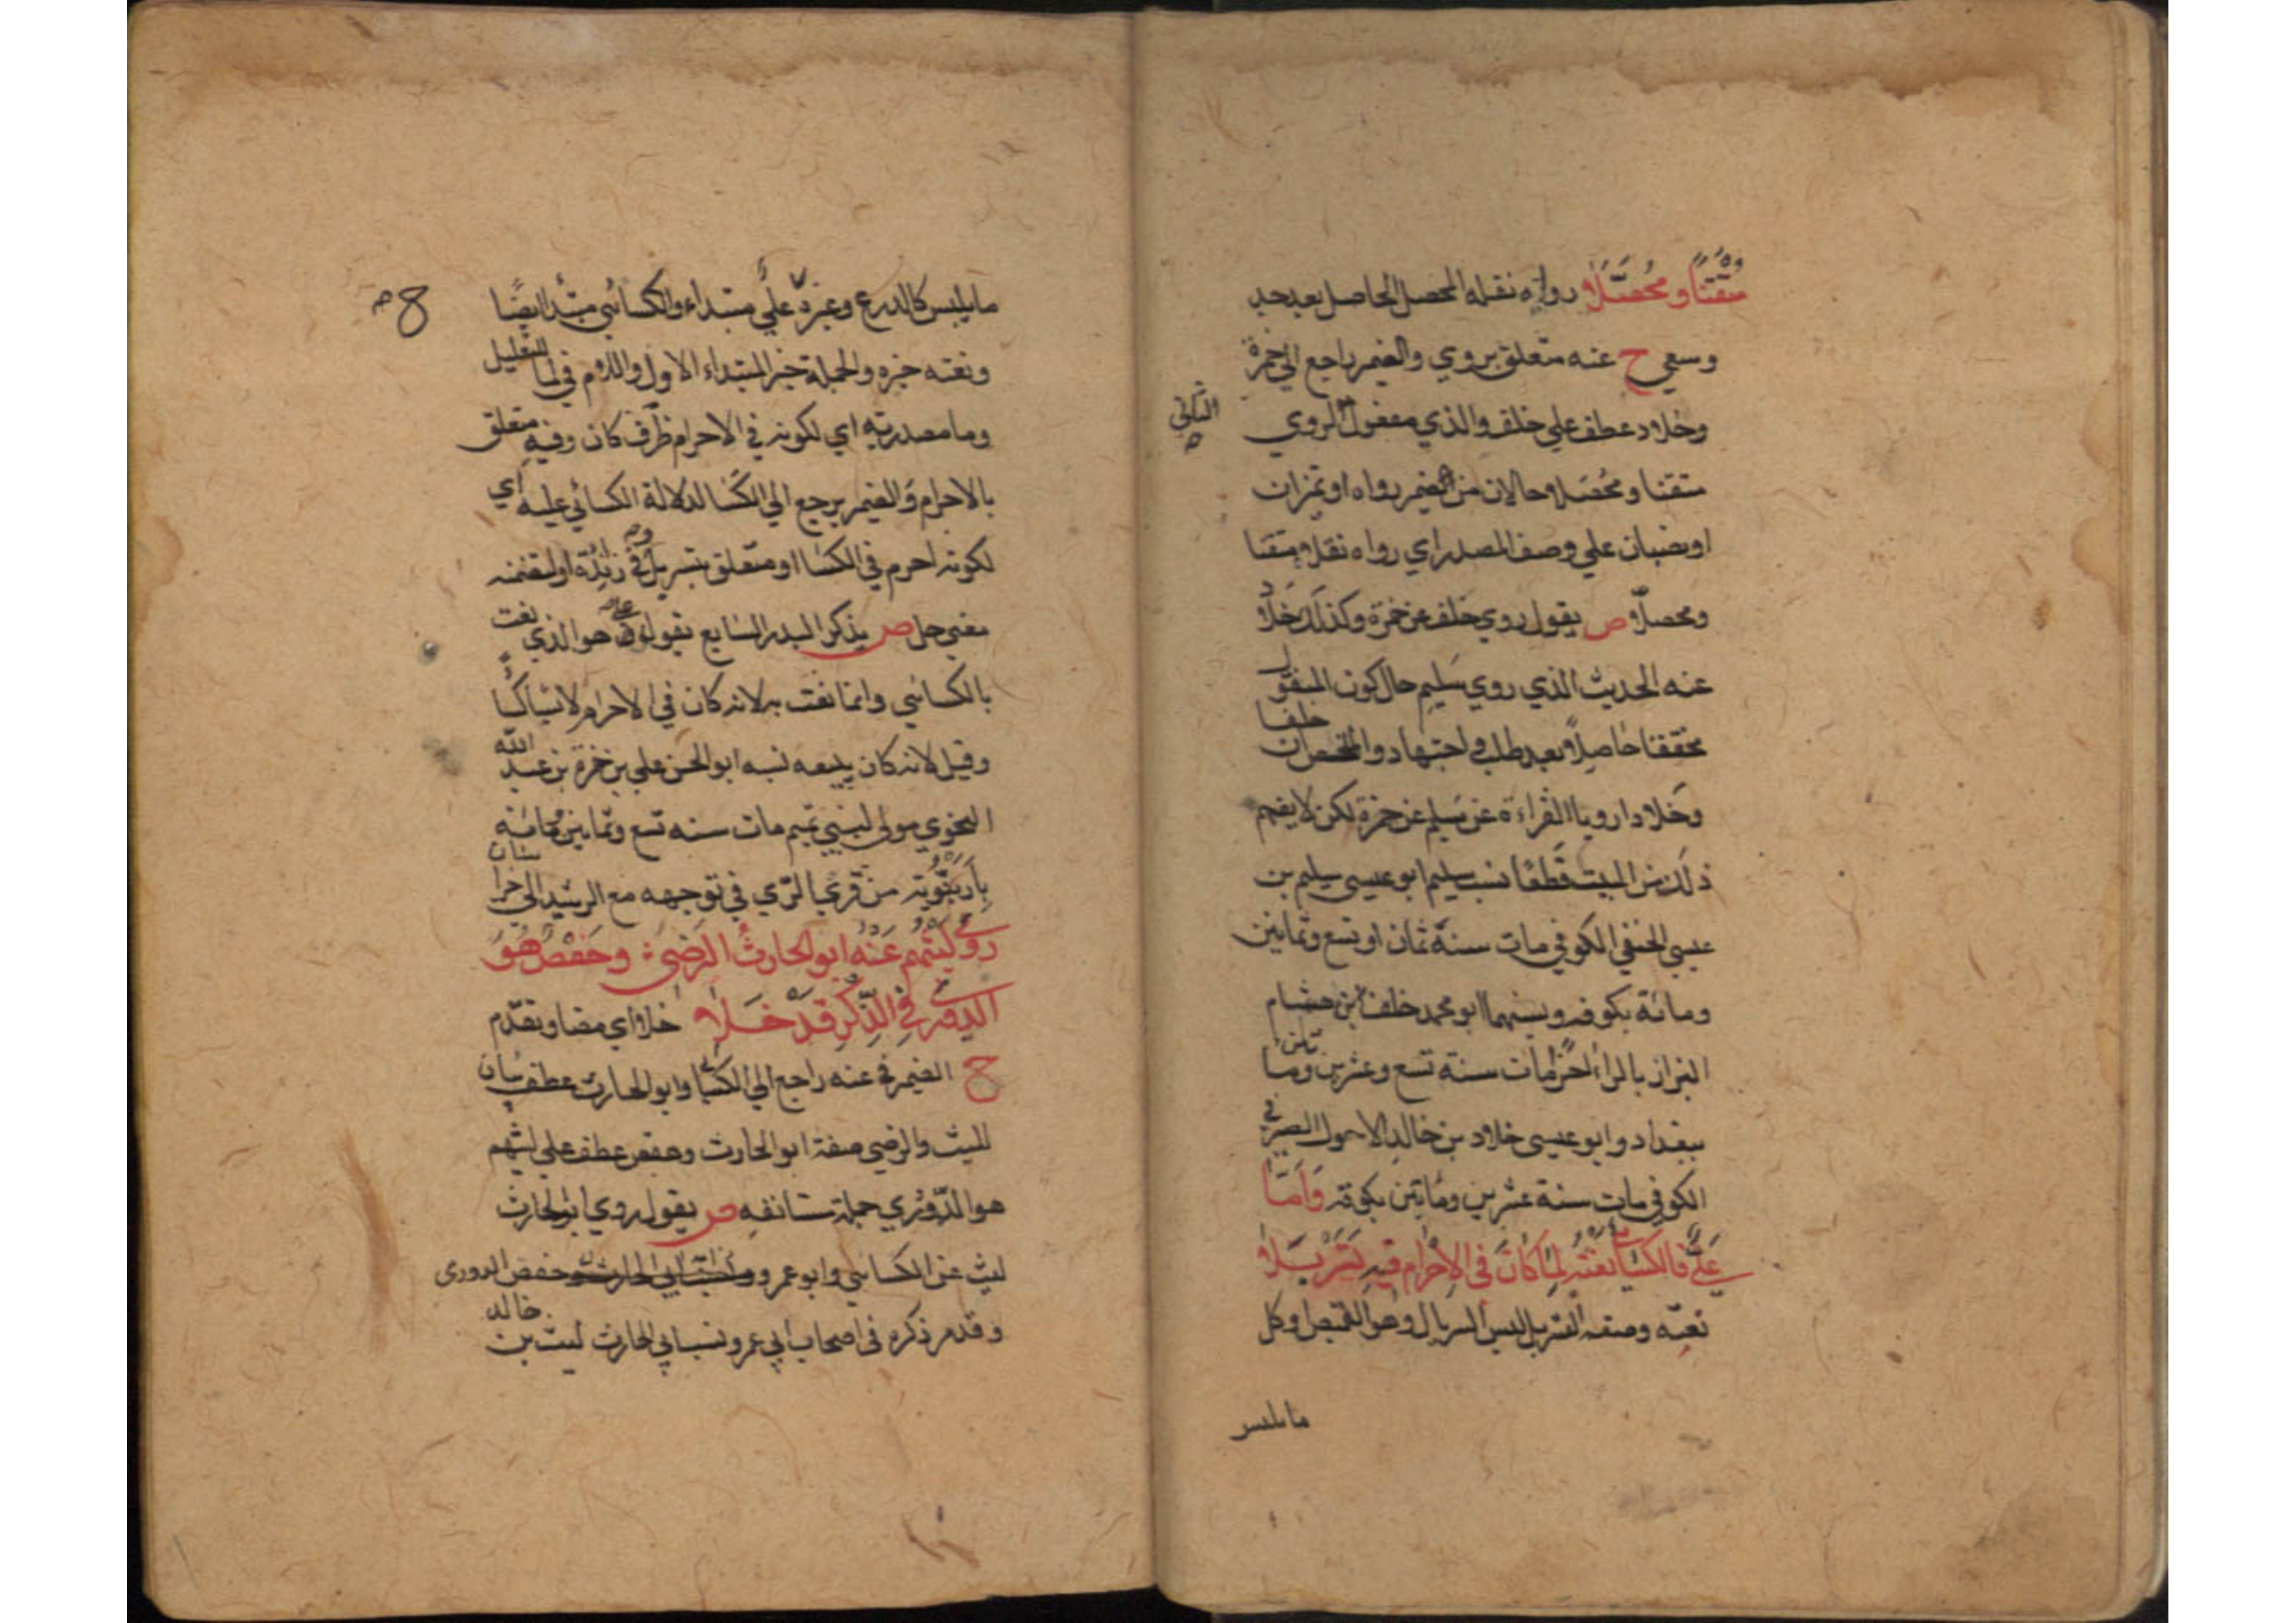 متقنا ومحصلا رواه نقله المحصل الحاصل بعد جد
وسعي ح عنه متعلق بروي والضمير راجع الي حمزة
وخلاد عطف علي خلف والذي مفعول لروي
الثاني
متقنا ومحصلا حالان من الضمير رواه او تميزان
او نصبان علي وصف المصدر اي رواه نقلا متقنا
ومحصلا ص يقول روي خلف عن حمزة وكذلك خلاد
عنه الحديث الذي روي سليم حال كون المنقول
محققا حاصلا بعد طلب واجتهاد والمخص ان خلفا
وخلادا رويا القراءة عن سليم عن حمزة لكن لا يفهم
ذلك من البيت قطعا نسب سليم ابو عيسي سليم بن
عيسي الحنفي الكوفي مات سنة ثمان او تسع وثمانين
ومائة بكوفه ونسبهما ابو محمد خلف ابن هشام
البزاز بالراء اخرا مات سنة تسع وعشرين ومائتين
ببغداد وابو عيسى خلاد بن خالد الاحول الصيرفي
الكوفي مات سنة عشرين ومايتين بكوفه وأما
علي فالكسائي نعته لما كان في الاحرام فيه تسربلا
نعته وصفه التسربل لبس السربال وهو القميص او كل
مايلبس
مايلبس كالدرع وغيره علي مبتداء والكسائي مبتدا ايضا
ح
ونعته خبره والجملة خبر المبتداء الاول واللام في لما للتعليل
وما مصدريه اي لكونه في الاحرام ظرف كان وفيه متعلق
بالاحرام والضمير يرجع الي الكسا لدلالة الكسائي عليه اي
لكونه احرم في الكسا او متعلق بتسربل وفي زائدة او لتضمنه
معني حل ص يذكر البدر السابع يقول علي هو الذي نعت
بالكسائي وانما نعت به لانه كان في الاحرام لابسا كسا
وقيل لانه كان يبيعه نسبه ابو الحسن علي بن حمزة بن عبد الله
النحوي مولى لبني تميم مات سنه تسع وثمانين ومائه
بارنبويه من قري الري في توجهه مع الرشيد الى خراسان
روى ليثهم عنه ابو الحارث الرضي وحفص هو
الدوري في الذكر قد خلا خلا اي مضا وتقدم
ح الضمير في عنه راجع الي الكسائي وابو الحارث عطف بيان
لليث والرضي صفة ابو الحارث وحفص عطف علي ليثهم
هو الدوري جملة مستانفه ص يقول روي ابو الحارث
ليث عن الكسائي وابو عمرو حفص الدورى
وقد مر ذكره فى اصحاب ابي عمرو نسب ابي الحارث ليث بن خالد